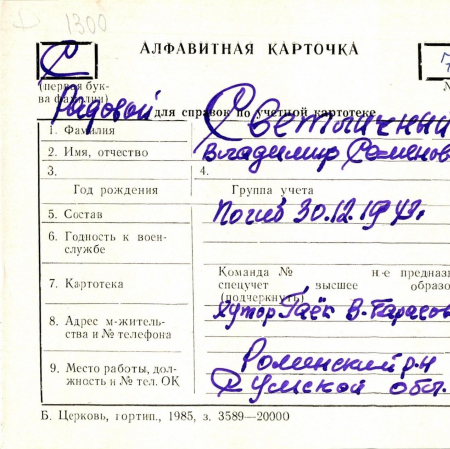 1300
АЛФАВИТНАЯ КАРТОЧКА
С
(первая бук-
ва фамилии)
Рядовой
для справок по учетной картотеке
1. Фамилия Светличный
2. Имя, отчество Владимир Семенов
3. 4.
Год рождения Группа учета
5. Состав Погиб 30.12.1943г.
6. Годность к воен-
службе
Команда № н-е предназ
7. Картотека спецучет высшее образо
(подчеркнуть)
8. Адрес м-житель-
ства и № телефона
хутор Гаёк В-Тарасов
9. Место работы, дол-
жность и № тел. ОК
Роменский р-н
Сумской обл.
Б. Церковь, гортип., 1985, з. 3589—20000